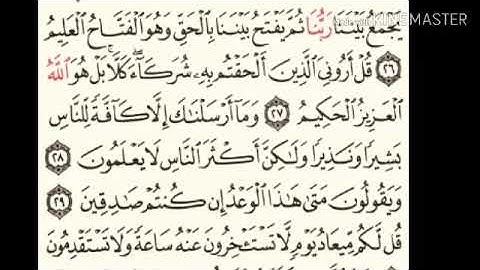 KINEMASTER
يَجْمَعُ بَيْنَنَا رَبُّنَا ثُمَّ يَفْتَحُ بَيْنَنَا بِالْحَقِّ وَهُوَ الْفَتَّاحُ الْعَلِيمُ
٢٦ قُلْ أَرُونِيَ الَّذِينَ أَلْحَقْتُم بِهِۦ شُرَكَآءَ ۖ كَلَّا ۚ بَلْ هُوَ اللَّهُ
الْعَزِيزُ الْحَكِيمُ ٢٧ وَمَآ أَرْسَلْنَٰكَ إِلَّا كَآفَّةً لِّلنَّاسِ
بَشِيرًا وَنَذِيرًا وَلَٰكِنَّ أَكْثَرَ النَّاسِ لَا يَعْلَمُونَ ٢٨
وَيَقُولُونَ مَتَىٰ هَٰذَا الْوَعْدُ إِن كُنتُمْ صَٰدِقِينَ ٢٩
قُل لَّكُم مِّيعَادُ يَوْمٍ لَّا تَسْتَـْٔخِرُونَ عَنْهُ سَاعَةً وَلَا تَسْتَقْدِمُونَ